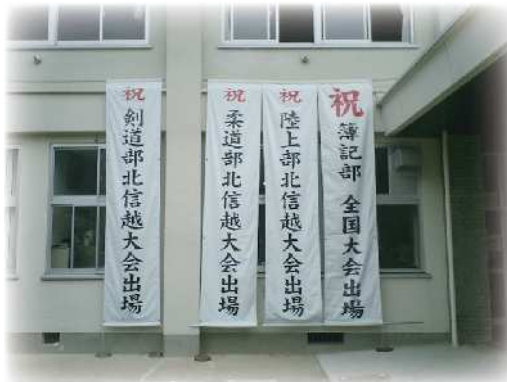 祝 簿記部 全国大会出場
祝 陸上部北信越大会出場
祝 柔道部北信越大会出場
祝 剣道部北信越大会出場